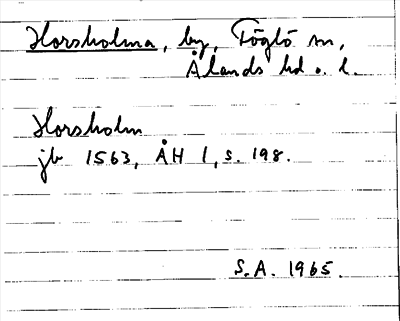 Horsholma, by, Föglö sn,
Ålands hd o. l.
Horsholm
jb 1563, ÅH 1, s. 198.
S.A. 1965.